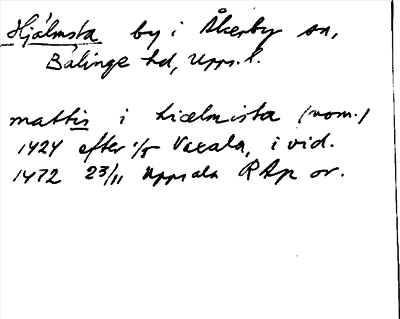 Hjälmsta by i Åkerby sn,
Bälinge hd, Upps. l.
mattis i hiælmista (nom.)
1424 efter 1/5 Vaxala, i vid.
1472 23/11 Uppsala RAp or.